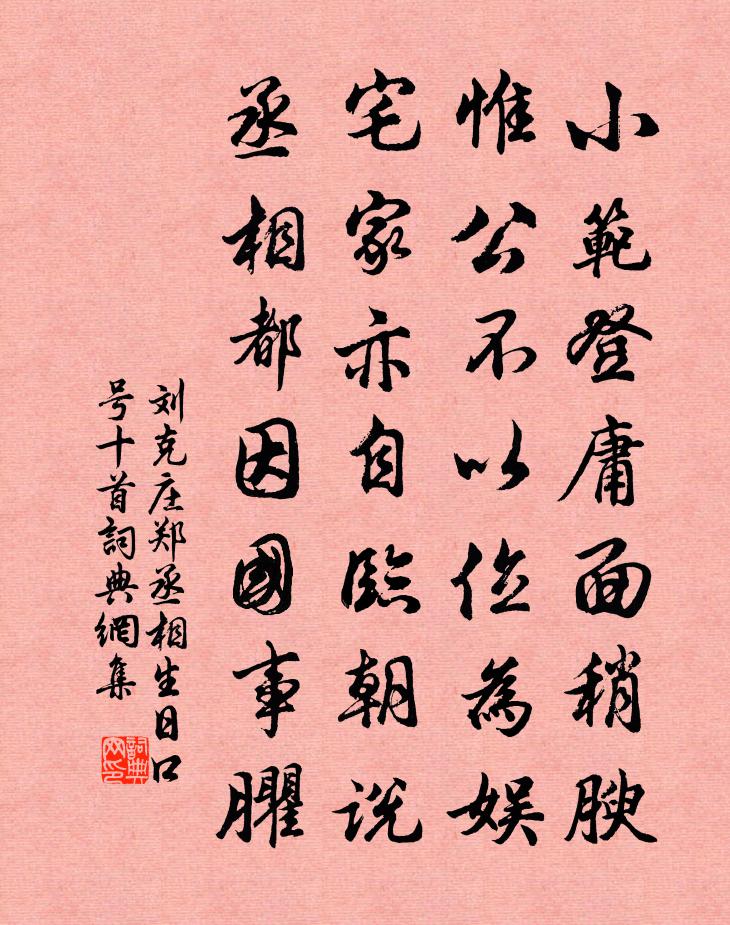 小範登庸面稍腴
惟公不以位為娛
宅家亦自臨朝說
丞相都因國事臞
刘克庄郑丞相生日口
号十首詞典網集
詞典
网印